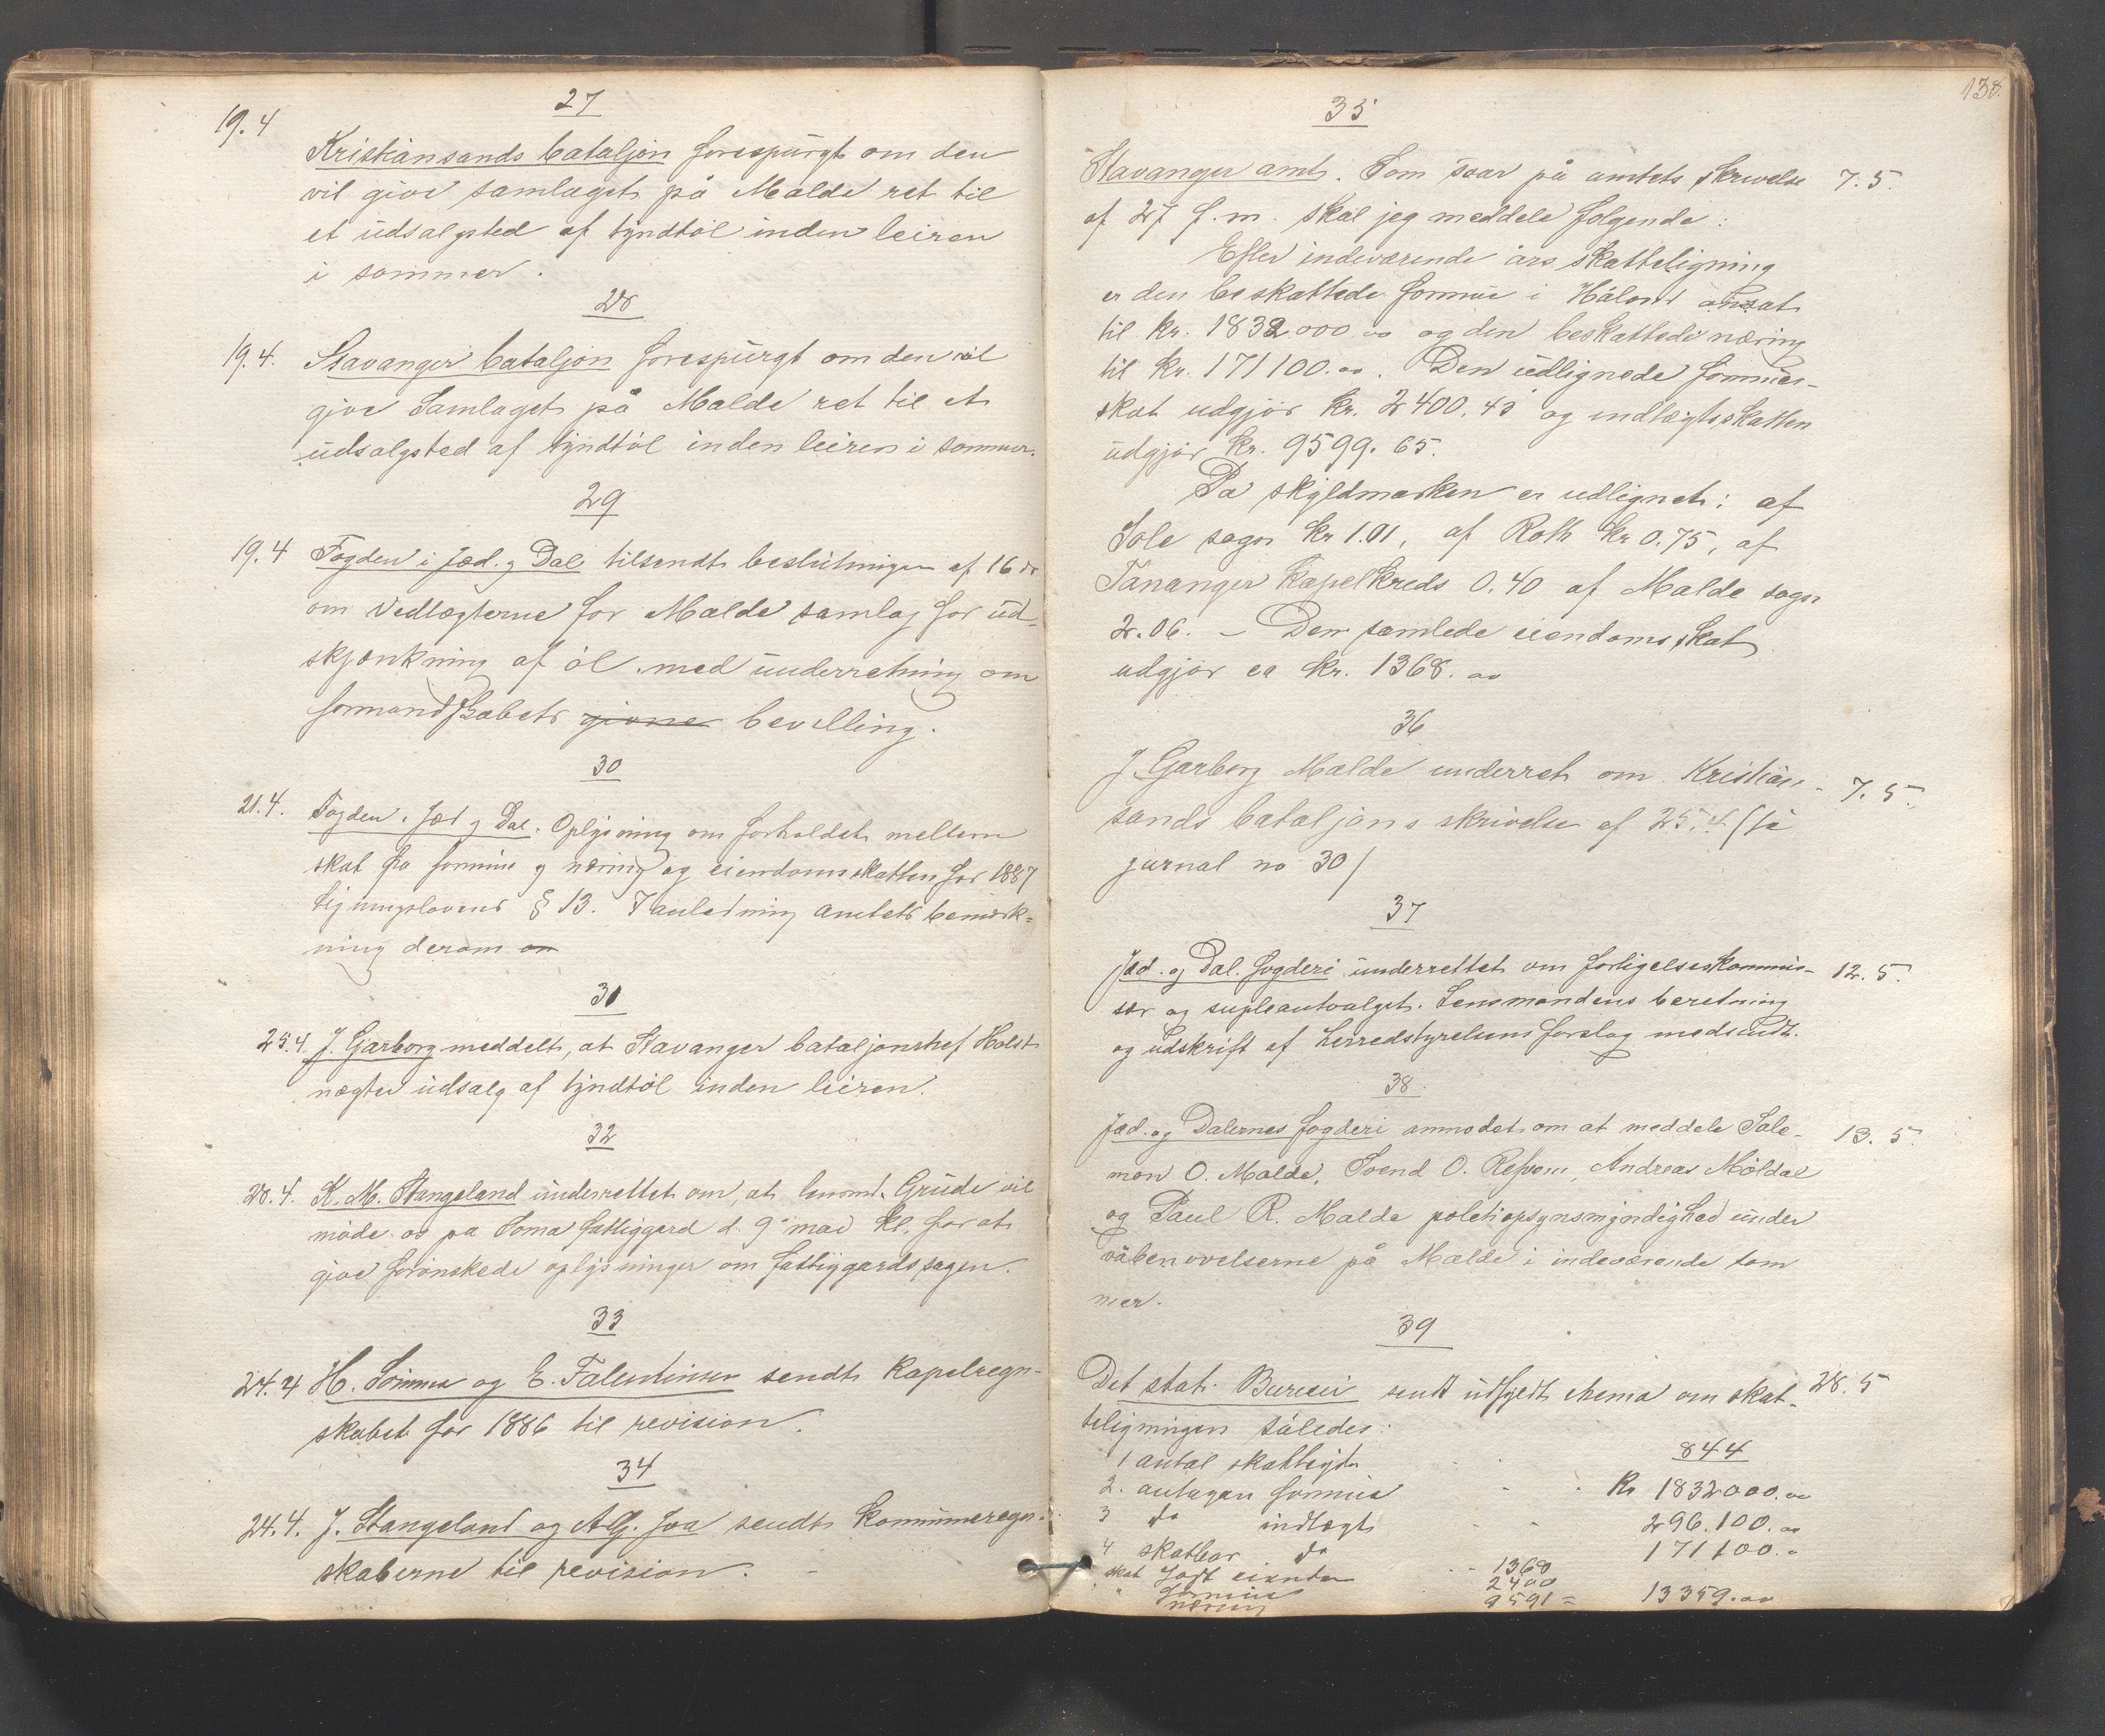 27
19.4
Kristiansands bataljon forespurgt om den
vil give samlaget på Malde ret til
et udsalgsted af tyndtøl inden leiren
i sommer.
28
19.4. Stavanger bataljon forespurgt om den vil
give Samlaget på Malde ret til et
udsalgsted af tyndtøl inden leiren i sommer.
29
19.4 Fogden i Jæd. og Dal tilsendt beslutningen af 16 ds
om Vedtægterne for Malde samlag for ud-
skjænkning af øl med underretning om
formandskabets givne bevilling.
30
21.4. Fogden i Jæd og Dal. Oplysning om forholdet mellem
skat fra formue og næring og eiendomsskatten for 1887
Ligningslovens § 13. I anledning amtets bemærk-
ning derom om
31
25.4. J. Garborg meddelt, at Stavanger bataljonschef Holst
nægter udsalg af tyndtøl inden leiren.
32
20.4. K. M. Stangeland underrettet om, at lensmd. Grude vil
møde os på Soma fattiggard d. 9 mai kl. for at
give forønskede oplysninger om fattiggardssagen.
33
24.4 H. Sømme og E. Falentinsen sendt Kapelregn-
skabet for 1886 til revision.
34
24.4. J. Stangeland og A. G. Joa sendt Kommuneregn-
skaberne til revision.
138.
35
Stavanger amt. Som svar på amtets skrivelse 7.5.
af 27 f.m. skal jeg meddele følgende:
Efter indeværende års skatteligning
er den beskattede formue i Håland ansat
til kr. 1832.000.00 og den beskattede næring
til kr. 171100.00. Den udlignede formues-
skat udgjør kr. 2400.45 og indtægtsskatten
udgjør kr. 9599.65.
Pa skyldmarken er udlignet: af
Sole sogn kr 1.01, af Roth kr 0.75, af
Tananger Kapelkreds 0.40 af Malde sogn
2.06. – Den samlede eiendomsskat
udgjør ca kr. 1368.00
36
J. Garborg Malde underret om Kristian- 7.5.
sands bataljons skrivelse af 25.4 (se
jurnal no 30)
37
Jæd. og Dal. fogderi underrettet om forligelseskommis- 12.5.
sær og supleantvalget. Lensmandens beretning
og udskrift af herredstyrelsens forslag medsendt.
38
Jæd. og Dalernes fogderi anmodet om at meddele Salo- 13.5.
mon O. Malde, Svend O. Andreas Møldal
og Paul R. Malde politiopsynsmyndighed under
våbenøvelserne på Malde i indeværende som
mer.
39
Det stat. Bureau sendt udfyldt skema om skat- 28.5
teligningen således:
1 antal skatteyde 844
2. antagen formue Kr 1832000.00
3 do indtægt 296.100.00
4 skatbar do 171100.
skat fast eiendom 1368
" formue 2400
næring 9591 = 13359.00